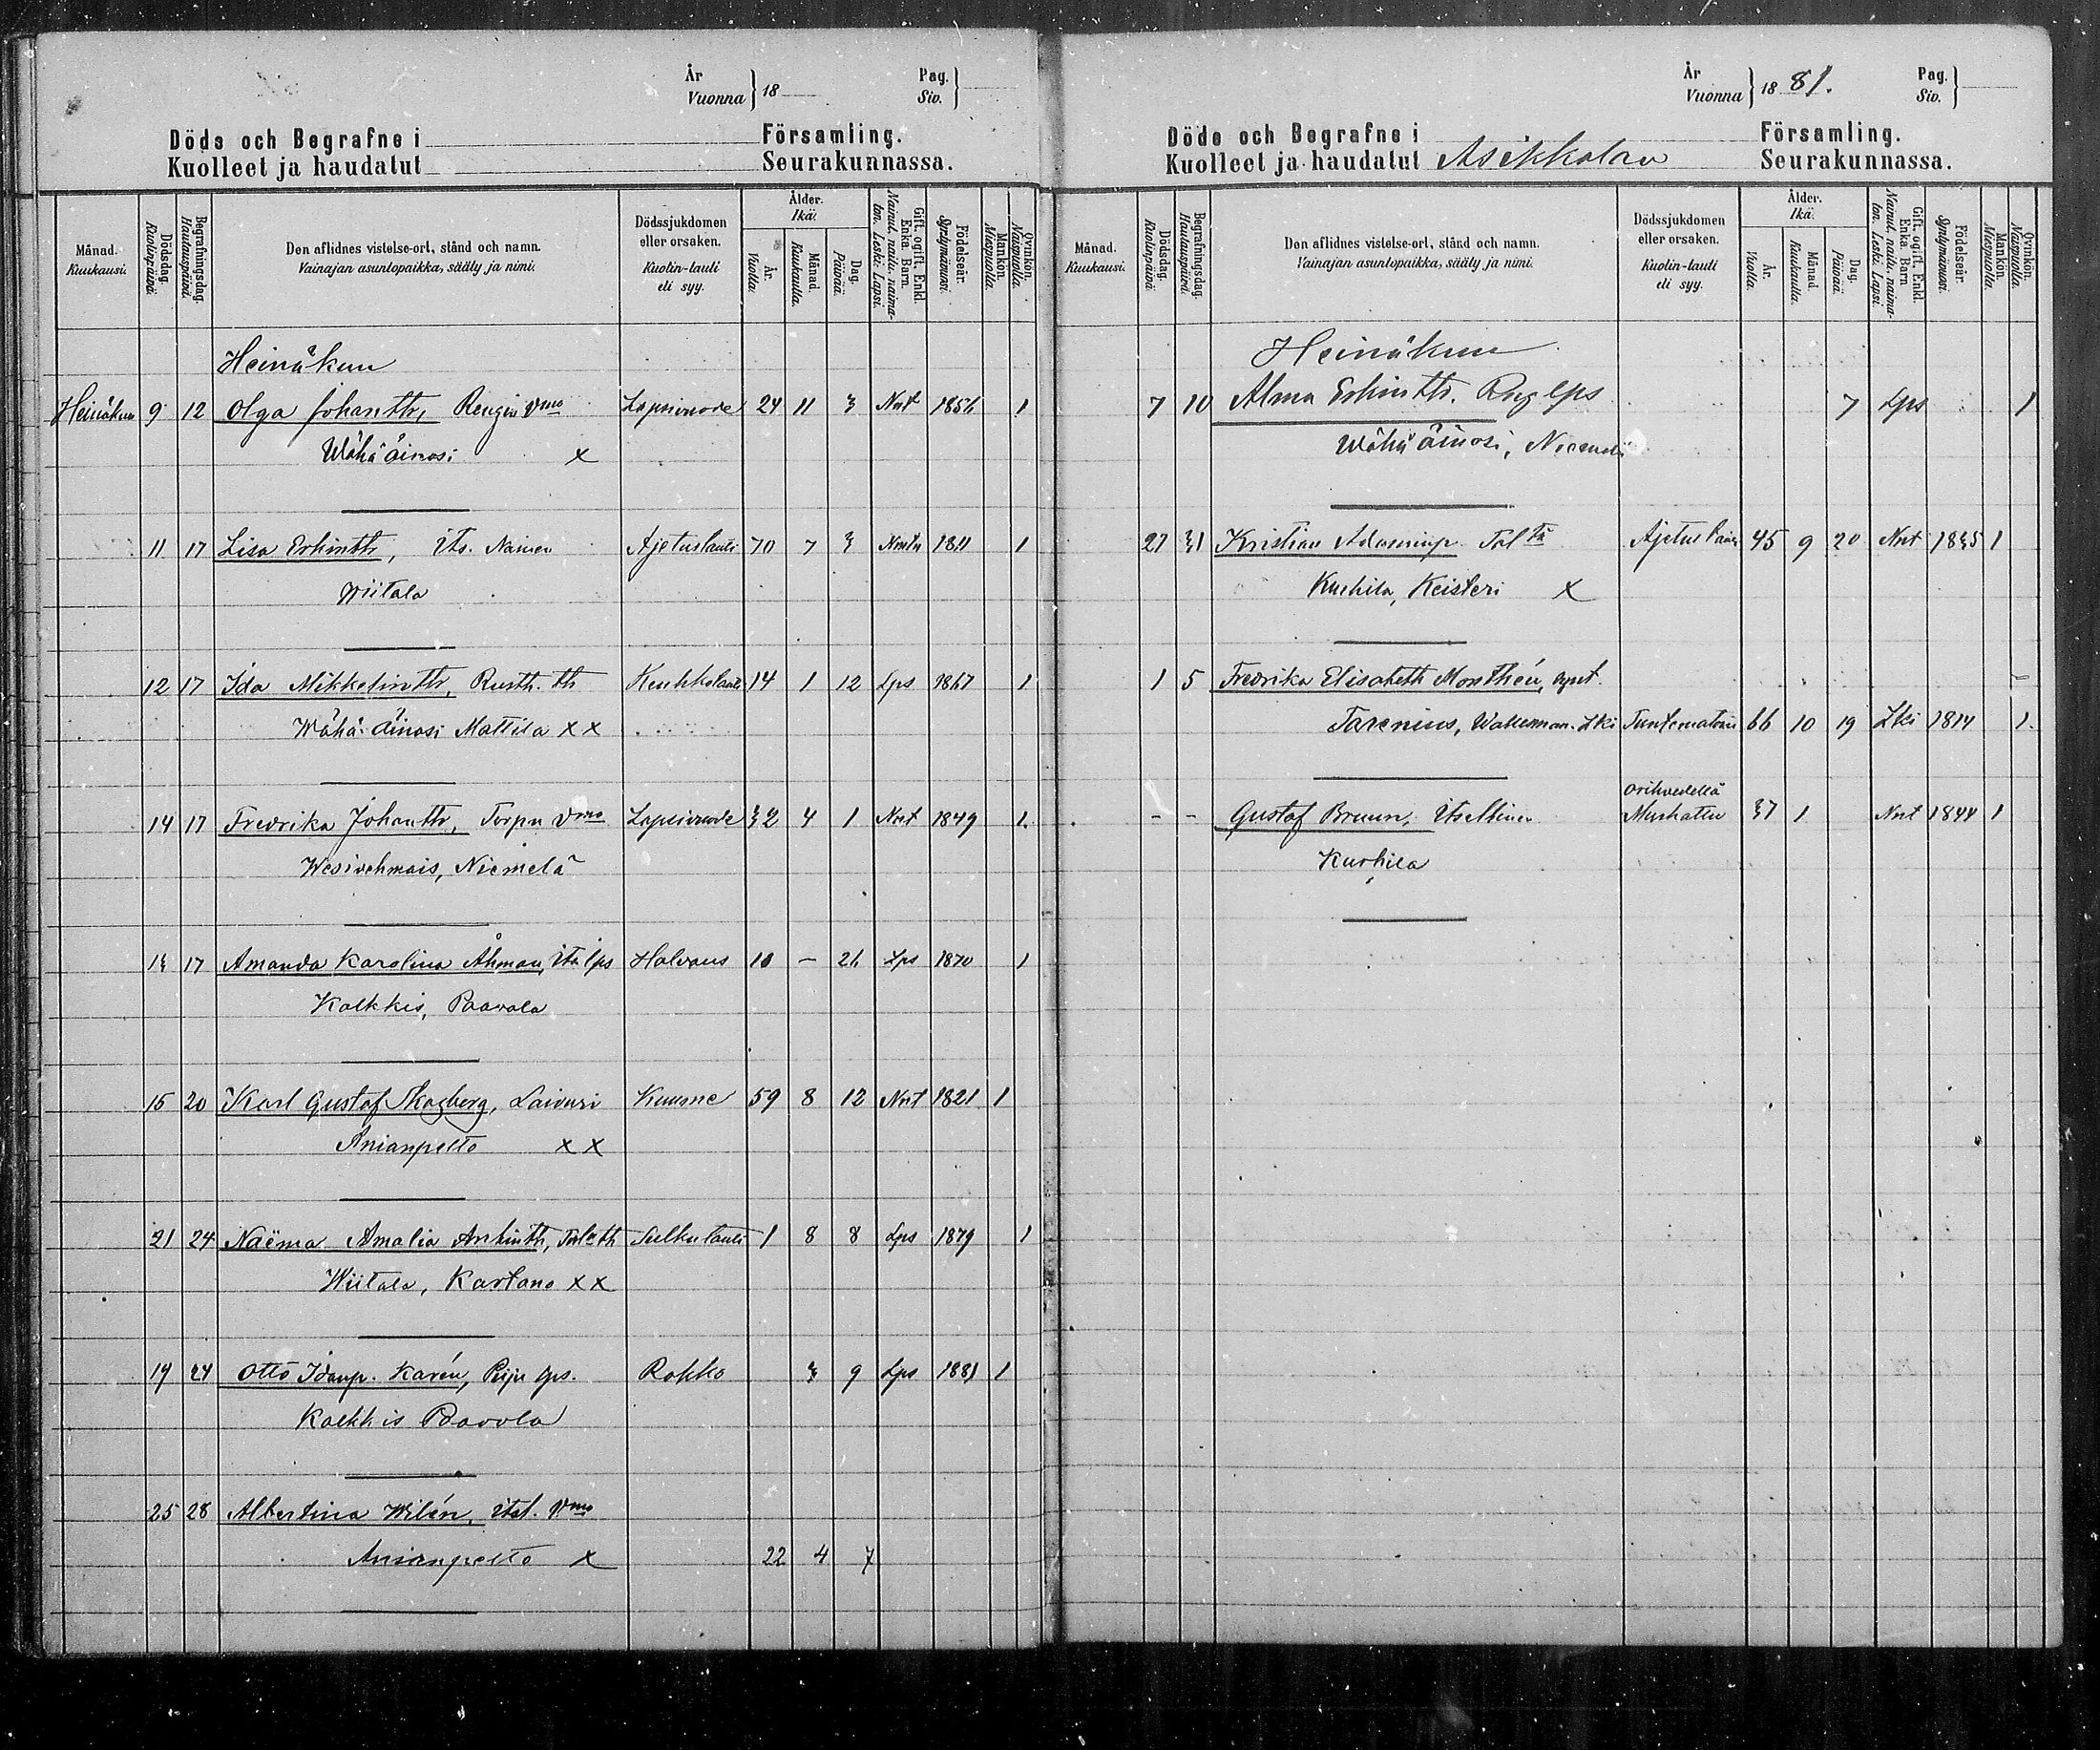 År
Vuonna } 18
Pag.
Siv. }
Döde och Begrafne i Församling.
Kuolleet ja haudatut Seurakunnassa.
Månad. Kuukausi.
Dödsdag. Kuolinpäivä.
Begrafningsdag. Hautauspäivä.
Den aflidnes vistelse-ort, stånd och namn.
Vainajan asuntopaikka, sääty ja nimi.
Dödssjukdomen eller orsaken.
Kuolin-tauti eli syy.
Ålder. Ikä.
År. Vuotta.
Månad. Kuukautta.
Dag. Päivää.
Gift, ogift. Enkl. Enka. Barn.
Nainut, naitu, naimaton. Leski. Lapsi.
Födelseår. Syntymävuosi.
Mankön. Miespuolia.
Qvinkön. Naispuolia.
Heinäkuu
Heinäkuu 9 12 Olga Johantr, Rengin Vmo Lapsivuode 24 11 3 Nnt 1856 1
Wähä äiniosi x
11 17 Lisa Erkintr, its. Nainen Ajetustauti 70 7 3 Nmtn 1811 1
Wiitala
12 17 Ida Mikkelintr, Rusth. th Keuhkotauti 14 1 12 Lps 1867 1
Wähä-äiniosi Mattila x x
14 17 Fredrika Johantr, Torpn Vmo Lapsivuode 32 4 1 Nnt 1849 1.
Wesivehmais, Niemelä
17 Amanda Karolina Åhman, its lps Halvaus 10 – 26 Lps 1870 1
Kalkkis, Paavola
15 20 Karl Gustaf Skogberg, Laivuri Kuume 59 8 12 Nnt 1821 1
Anianpelto x x
21 24 Naëma Amalia Antintr, Tal th Sulkutauti 1 8 8 Lps 1879 1
Wiitala, Kartano x x
19 24 Otto Idanp. Karén, lps. Rokko 3 9 Lps 1881 1
Kalkkis Paavola
25 28 Albertina Wilén, itsl. Vmo
Anianpelto x 22 4 7
År
Vuonna } 18 81.
Pag.
Siv. }
Döde och Begrafne i Församling.
Kuolleet ja haudatut Asikkalan Seurakunnassa.
Månad. Kuukausi.
Dödsdag. Kuolinpäivä.
Begrafningsdag. Hautauspäivä.
Den aflidnes vistelse-ort, stånd och namn.
Vainajan asuntopaikka, sääty ja nimi.
Dödssjukdomen eller orsaken.
Kuolin-tauti eli syy.
Ålder. Ikä.
År. Vuotta.
Månad. Kuukautta.
Dag. Päivää.
Gift, ogift. Enkl. Enka. Barn
Nainut, naitu, naimaton. Leski. Lapsi.
Födelseår. Syntymävuosi.
Mankön. Miespuolia.
Qvinkön. Naispuolia.
Heinäkuu
7 10 Alma Erkintr. Rng lps 7 Lps 1
Wähä äiniosi,
27 31 Kristian Adaminp Tal Ajetustauti 45 9 20 Nnt 1835 1
Kurhila, Keisteri x
1 5 Fredrika Elisabeth Monthén, synt.
Tarenius, Lki Tuntematoin 66 10 19 Lki 1814 1.
Orihvedellä
- - Gustaf Bruun, Itsellinen Murhattu 37 1 Nnt 1844 1
Kurhila